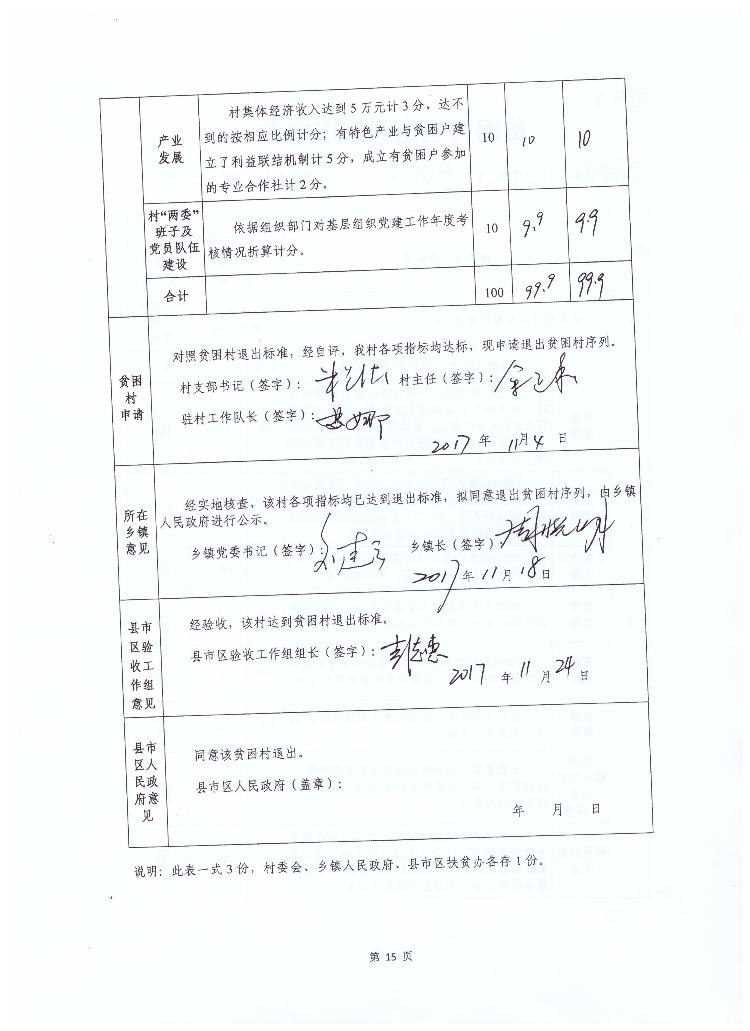 产业
发展
村集体经济收入达到5万元计3分，达不
到的按相应比例计分；有特色产业与贫困户建
立了利益联结机制计5分，成立有贫困户参加
的专业合作社计2分。
10
10
10
村“两委”
班子及
党员队伍
建设
依据组织部门对基层组织党建工作年度考
核情况折算计分。
10
9.9
9.9
合计
100
99.9
99.9
贫困
村
申请
对照贫困村退出标准，经自评，我村各项指标均达标，现申请退出贫困村序列。
村支部书记（签字）： 村主任（签字）：
驻村工作队长（签字）：
2017 年 11月4 日
所在
乡镇
意见
经实地核查，该村各项指标均已达到退出标准，拟同意退出贫困村序列，由乡镇
人民政府进行公示。
乡镇党委书记（签字）： 乡镇长（签字）
2017年11月18日
县市
区验
收工
作组
意见
经验收，该村达到贫困村退出标准。
县市区验收工作组组长（签字）：
2017 年 11 月 24 日
县市
区人
民政
府意
见
同意该贫困村退出。
县市区人民政府（盖章）：
年 月 日
说明：此表一式3份，村委会、乡镇人民政府、县市区扶贫办各存1份。
第 15 页